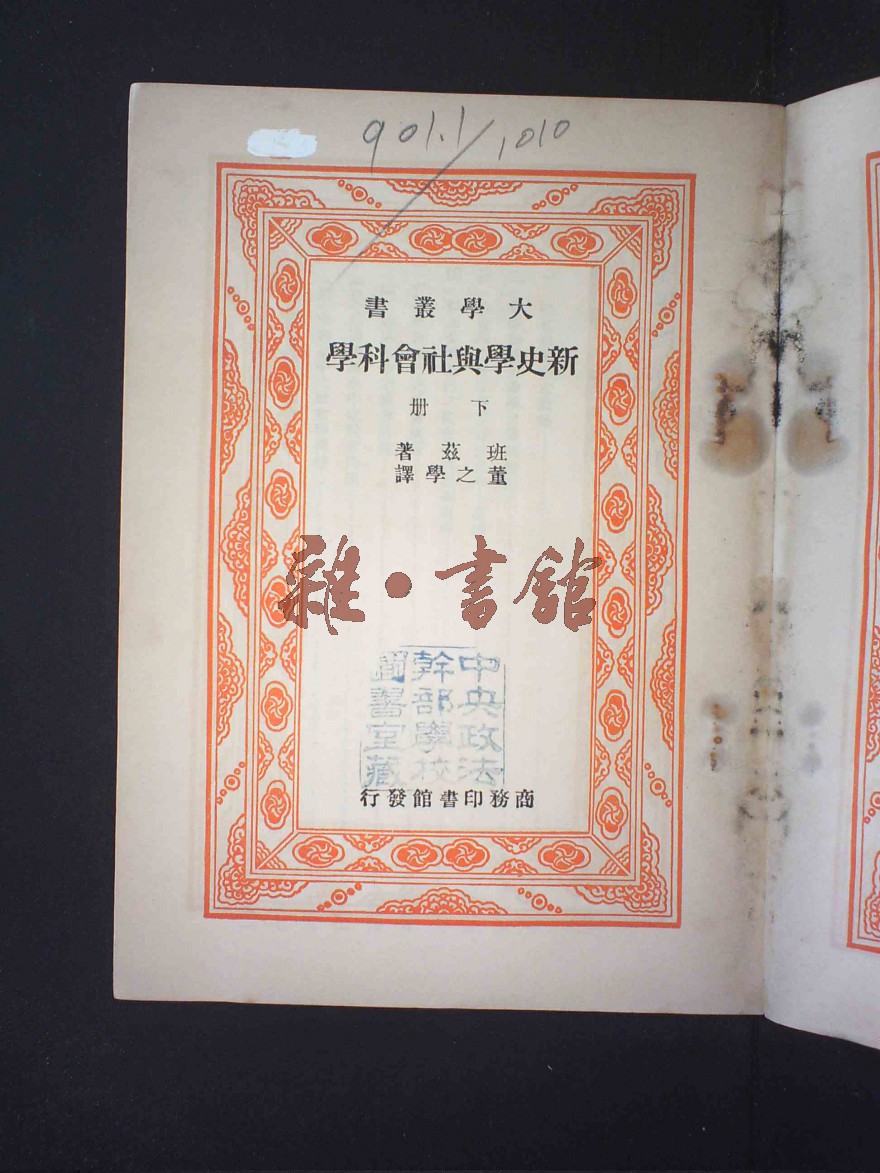 901.1/1010
大學叢書
新史學與社會科學
下册
班茲著
董之學譯
雜·書館
中央政法
幹部學校
圖書室藏
商務印書館發行